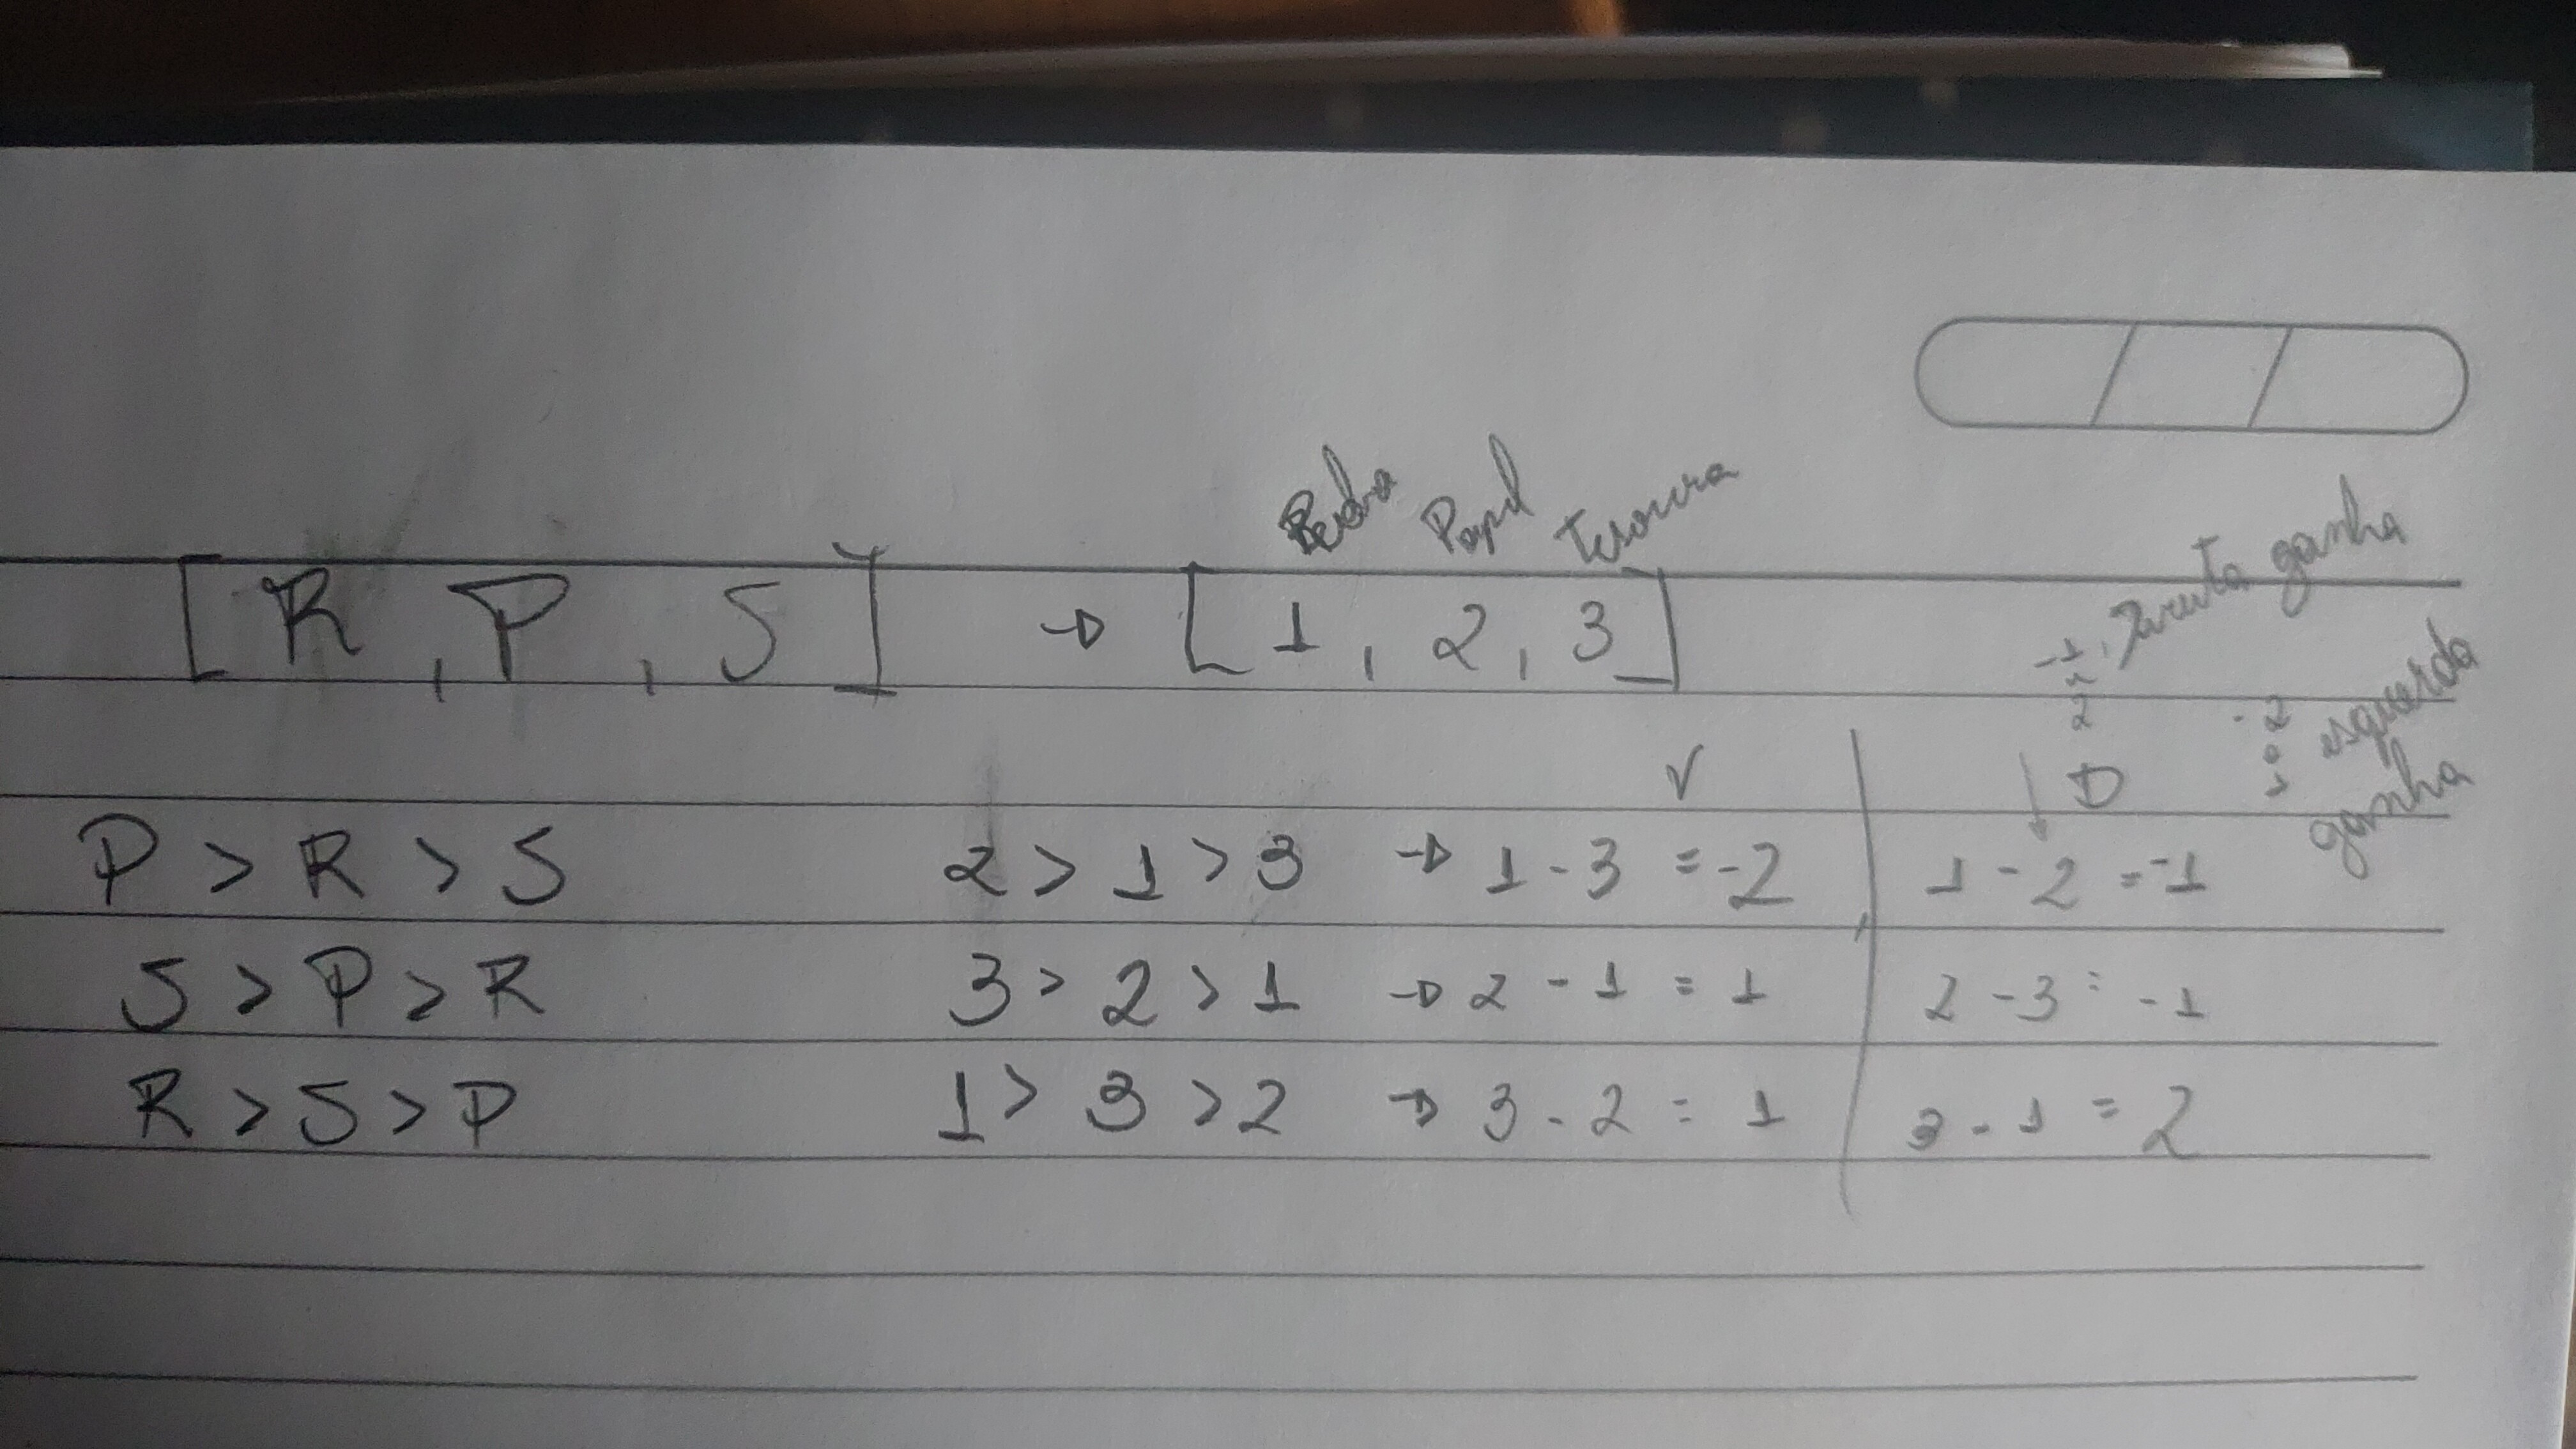 Pedra Papel Tesoura
[R, P, S] → [1, 2, 3]
-1, direita ganha
2
-2 esquerda
1 ganha
V
D
P > R > S 2 > 1 > 3 → 1 - 3 = -2 1 - 2 = -1
S > P > R 3 > 2 > 1 → 2 - 1 = 1 2 - 3 = -1
R > S > P 1 > 3 > 2 → 3 - 2 = 1 3 - 1 = 2